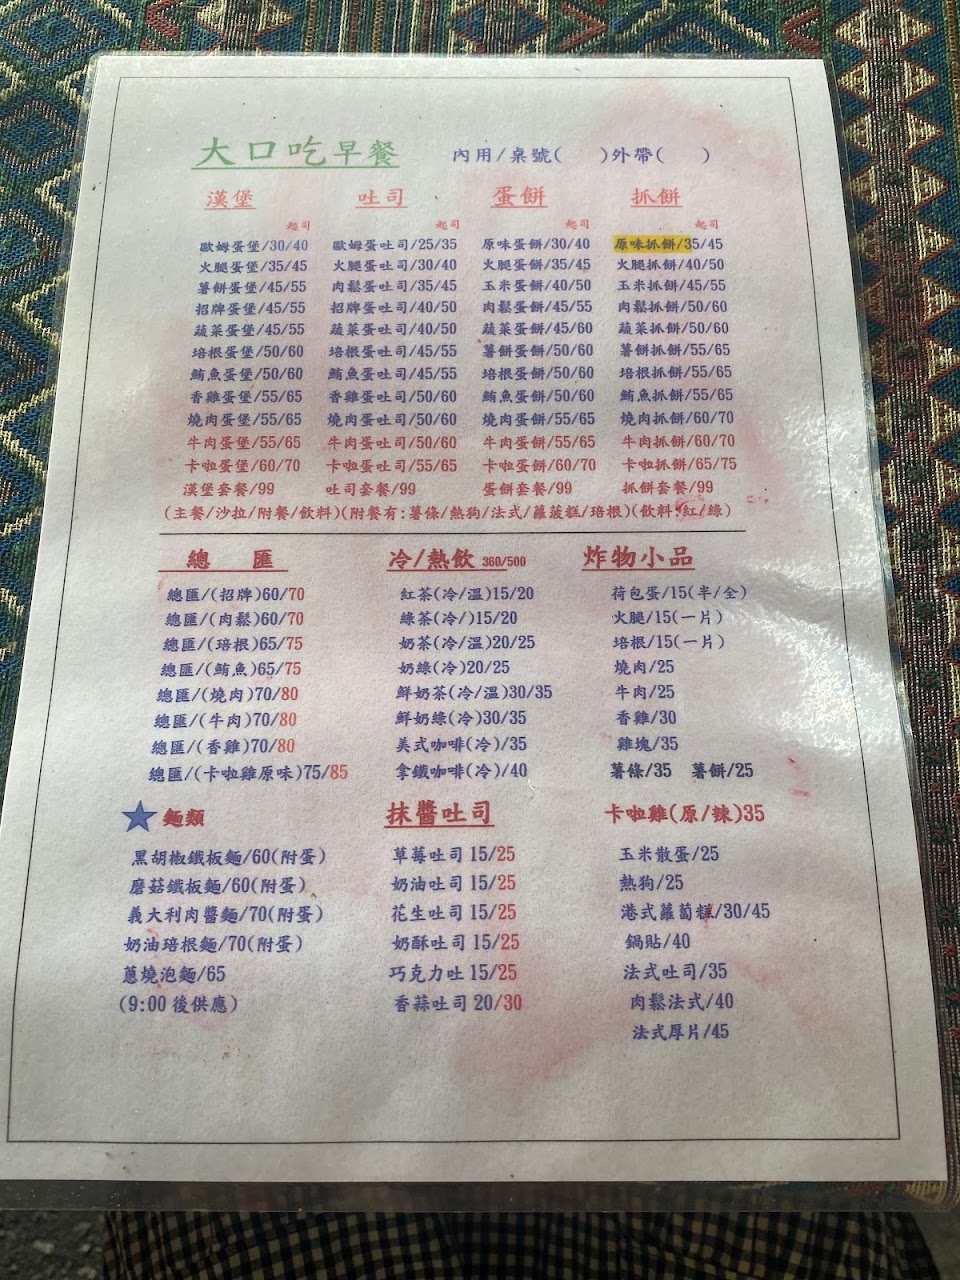 大口吃早餐 內用/桌號( )外帶( )
漢堡 吐司 蛋餅 抓餅
起司 起司 起司 起司
歐姆蛋堡/30/40 歐姆蛋吐司/25/35 原味蛋餅/30/40 原味抓餅/35/45
火腿蛋堡/35/45 火腿蛋吐司/30/40 火腿蛋餅/35/45 火腿抓餅/40/50
薯餅蛋堡/45/55 肉鬆蛋吐司/35/45 玉米蛋餅/40/50 玉米抓餅/45/55
招牌蛋堡/45/55 招牌蛋吐司/40/50 肉鬆蛋餅/45/55 肉鬆抓餅/50/60
蔬菜蛋堡/45/55 蔬菜蛋吐司/40/50 蔬菜蛋餅/45/60 蔬菜抓餅/50/60
培根蛋堡/50/60 培根蛋吐司/45/55 薯餅蛋餅/50/60 薯餅抓餅/55/65
鮪魚蛋堡/50/60 鮪魚蛋吐司/45/55 培根蛋餅/50/60 培根抓餅/55/65
香雞蛋堡/55/65 香雞蛋吐司/50/60 鮪魚蛋餅/50/60 鮪魚抓餅/55/65
燒肉蛋堡/55/65 燒肉蛋吐司/50/60 燒肉蛋餅/55/65 燒肉抓餅/60/70
牛肉蛋堡/55/65 牛肉蛋吐司/50/60 牛肉蛋餅/55/65 牛肉抓餅/60/70
卡啦蛋堡/60/70 卡啦蛋吐司/55/65 卡啦蛋餅/60/70 卡啦抓餅/65/75
漢堡套餐/99 吐司套餐/99 蛋餅套餐/99 抓餅套餐/99
(主餐/沙拉/附餐/飲料)(附餐有:薯條/熱狗/法式/蘿菠糕/培根)(飲料:紅/綠)
總 匯 冷/熱飲 360/500 炸物小品
總匯/(招牌)60/70 紅茶(冷/溫)15/20 荷包蛋/15(半/全)
總匯/(肉鬆)60/70 綠茶(冷/)15/20 火腿/15(一片)
總匯/(培根)65/75 奶茶(冷/溫)20/25 培根/15(一片)
總匯/(鮪魚)65/75 奶綠(冷)20/25 燒肉/25
總匯/(燒肉)70/80 鮮奶茶(冷/溫)30/35 牛肉/25
總匯/(牛肉)70/80 鮮奶綠(冷)30/35 香雞/30
總匯/(香雞)70/80 美式咖啡(冷)/35 雞塊/35
總匯/(卡啦雞原味)75/85 拿鐵咖啡(冷)/40 薯條/35 薯餅/25
★麵類 抹醬吐司 卡啦雞(原/辣)35
黑胡椒鐵板麵/60(附蛋) 草莓吐司 15/25 玉米散蛋/25
磨菇鐵板麵/60(附蛋) 奶油吐司 15/25 熱狗/25
義大利肉醬麵/70(附蛋) 花生吐司 15/25 港式蘿蔔糕/30/45
奶油培根麵/70(附蛋) 奶酥吐司 15/25 鍋貼/40
蔥燒泡麵/65 巧克力吐 15/25 法式吐司/35
(9:00 後供應) 香蒜吐司 20/30 肉鬆法式/40
法式厚片/45